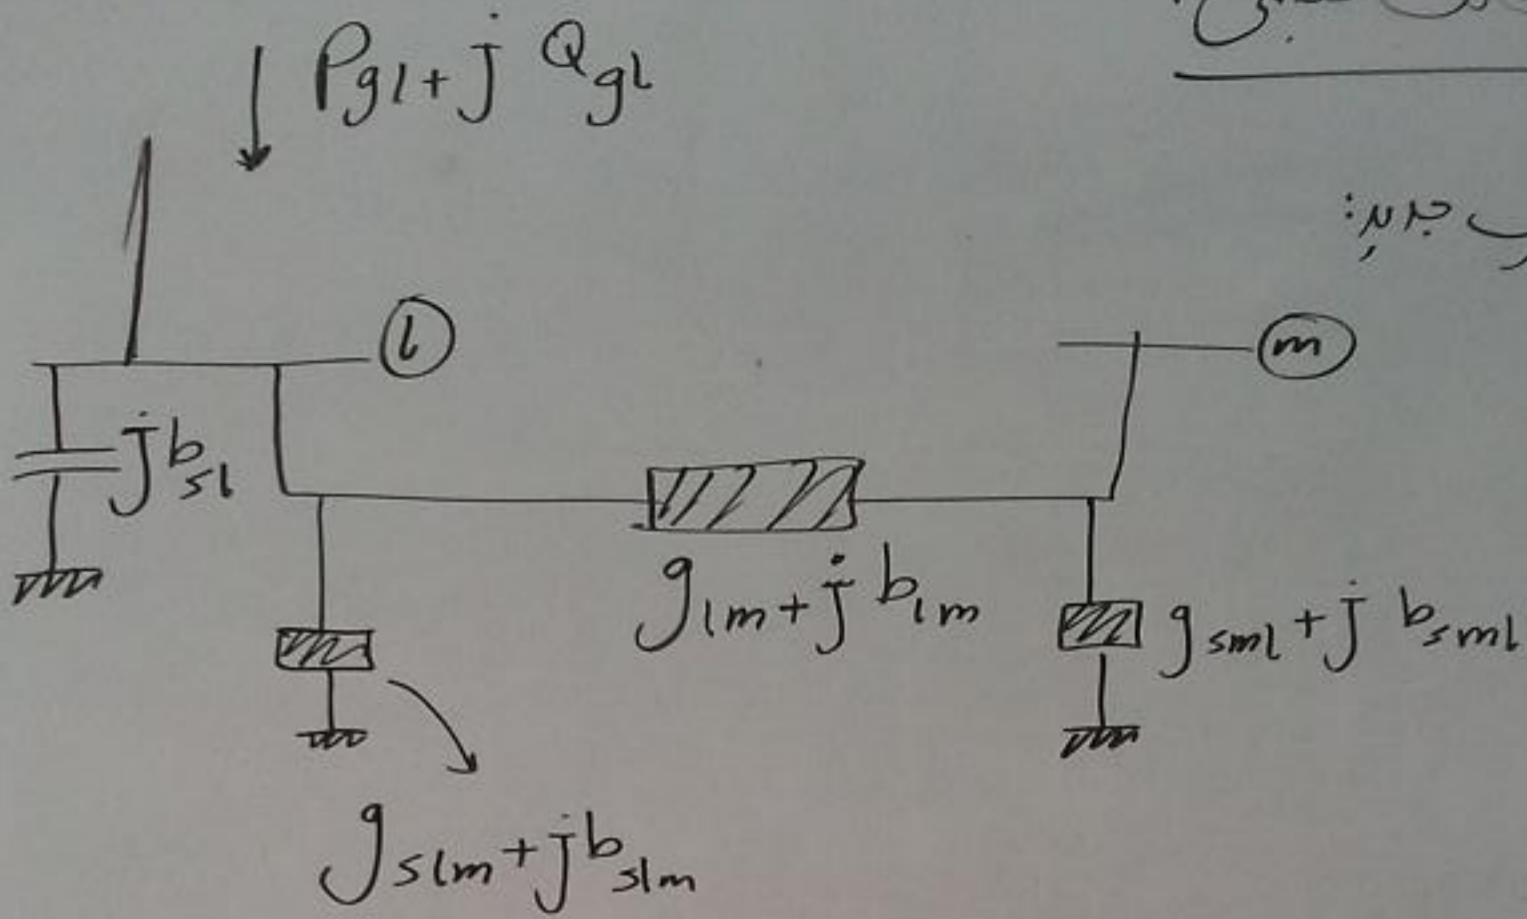 P_gl + j Q_gl
جدید:
l
m
jb_sl
g_lm + j b_lm
g_sml + j b_sml
g_slm + j b_slm